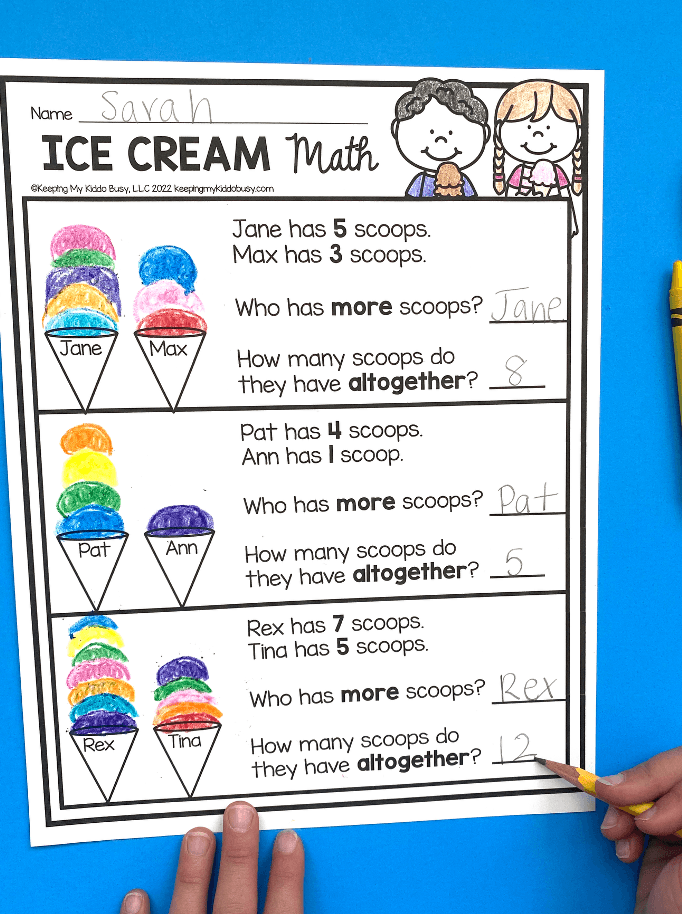 Name Sarah
ICE CREAM Math
©Keeping My Kiddo Busy, LLC 2022 keepingmykiddobusy.com
Jane has 5 scoops.
Max has 3 scoops.
Who has more scoops? Jane
How many scoops do
they have altogether? 8
Jane Max
Pat has 4 scoops.
Ann has 1 scoop.
Who has more scoops? Pat
How many scoops do
they have altogether? 5
Pat Ann
Rex has 7 scoops.
Tina has 5 scoops.
Who has more scoops? Rex
How many scoops do
they have altogether? 12
Rex Tina